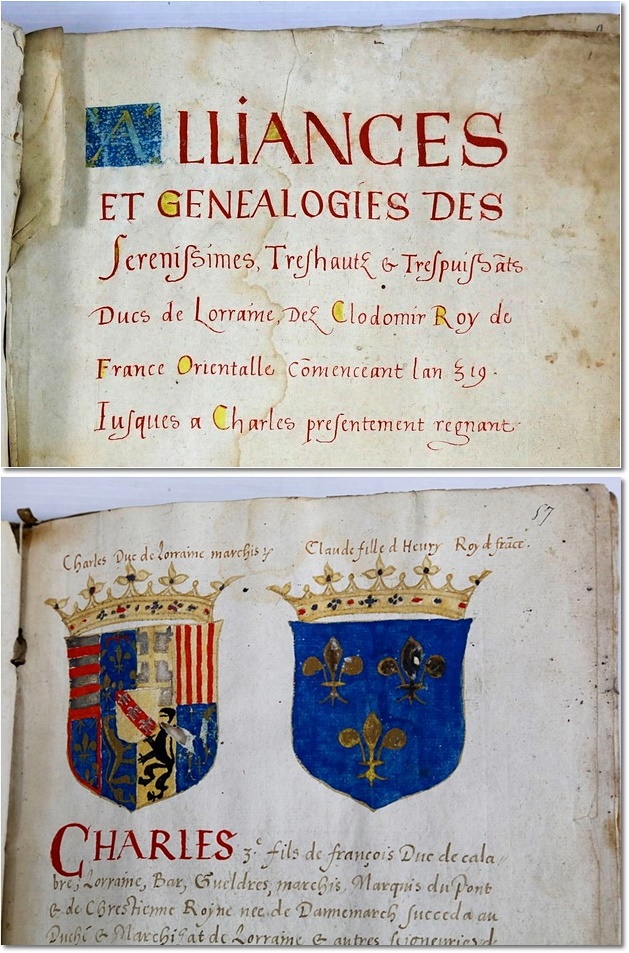 ALLIANCES
ET GENEALOGIES DES
Serenissimes, Treshautz & Trespuissāts
Ducs de Lorraine, Dez Clodomir Roy de
France Orientalle cōmenceant lan 319.
Iusques a Charles presentement regnant.
57
Charles Duc de Lorraine marchis
Claude fille d Henry Roy d frāce.
CHARLES 3.e fils de françois Duc de cala-
bre, Lorraine, Bar, Gueldres, marchis, Marquis du Pont
& de Chrestienne Royne nee de Dannemarch succeda au
Duché & Marchisat de Lorraine & autres seigneuries de